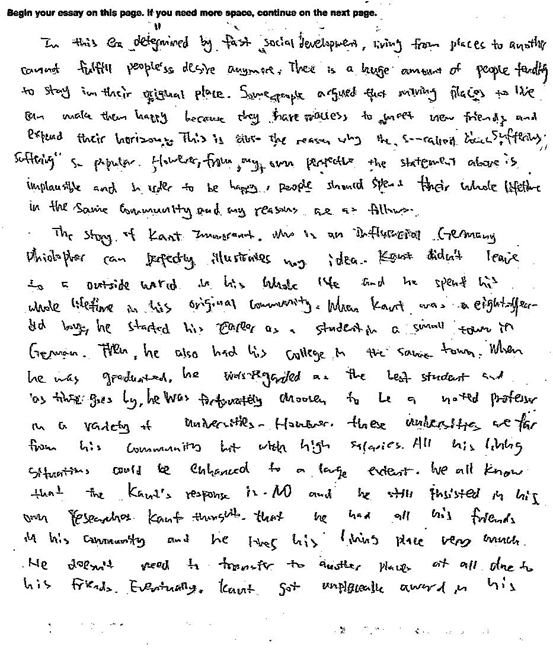 Begin your essay on this page. If you need more space, continue on the next page.
In this era determined by fast "social development, living from places to another
cannot fulfill people's desire anymore. There is a huge amount of people tending
to stay in their original place. Some people argued that moving places to live
can make them happy because they have access to meet new friends and
expend their horizons. This is also the reason why the so-called couch suffering
suffering" so popular. However, from my own perfective the statement above is
implausible and in order to be happy, people should spend their whole lifetime
in the same community and my reasons are as follows.
The story of Kant Immurant. who is an influencial Germany
Philolpher can perfectly illustrates my idea. Kant didn't leave
to a outside world in his whole life and he spend his
whole lifetime in his original community. When Kant was a eight-year-
old boy, he started his career as a student in a small town in
German. Then, he also had his college in the same town. When
he was graduated, he was regarded as the best student and
as time goes by, he was fortunately choosen to be a noted professor
in a variety of universities. However. these universities are far
from his community but with high salaries. All his living
situations could be enhanced to a large extent. We all know
that the Kant's response is NO and he still insisted in his
own researches. Kant thought that he had all his friends
in his community and he lives his living place very much.
He doesn't need to transfer to another places at all due to
his friends. Eventually. Kant got award in his